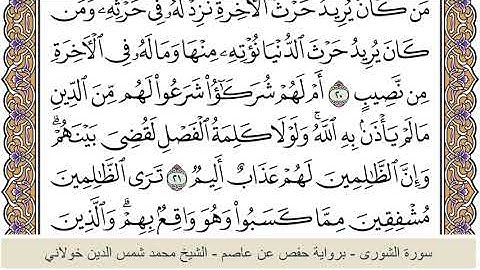 مَن كَانَ يُرِيدُ حَرْثَ ٱلْأَخِرَةِ نَزِدْ لَهُۥ فِى حَرْثِهِۦ وَمَن
كَانَ يُرِيدُ حَرْثَ ٱلدُّنْيَا نُؤْتِهِۦ مِنْهَا وَمَا لَهُۥ فِى ٱلْأَخِرَةِ
مِن نَّصِيبٍ ٢٠ أَمْ لَهُمْ شُرَكَٰٓؤُا۟ شَرَعُوا۟ لَهُم مِّنَ ٱلدِّينِ
مَا لَمْ يَأْذَنۢ بِهِ ٱللَّهُۚ وَلَوْلَا كَلِمَةُ ٱلْفَصْلِ لَقُضِىَ بَيْنَهُمْۗ
وَإِنَّ ٱلظَّٰلِمِينَ لَهُمْ عَذَابٌ أَلِيمٌ ٢١ تَرَى ٱلظَّٰلِمِينَ
مُشْفِقِينَ مِمَّا كَسَبُوا۟ وَهُوَ وَاقِعٌۢ بِهِمْۗ وَٱلَّذِينَ
سورة الشورى - برواية حفص عن عاصم - الشيخ محمد شمس الدين خولاني